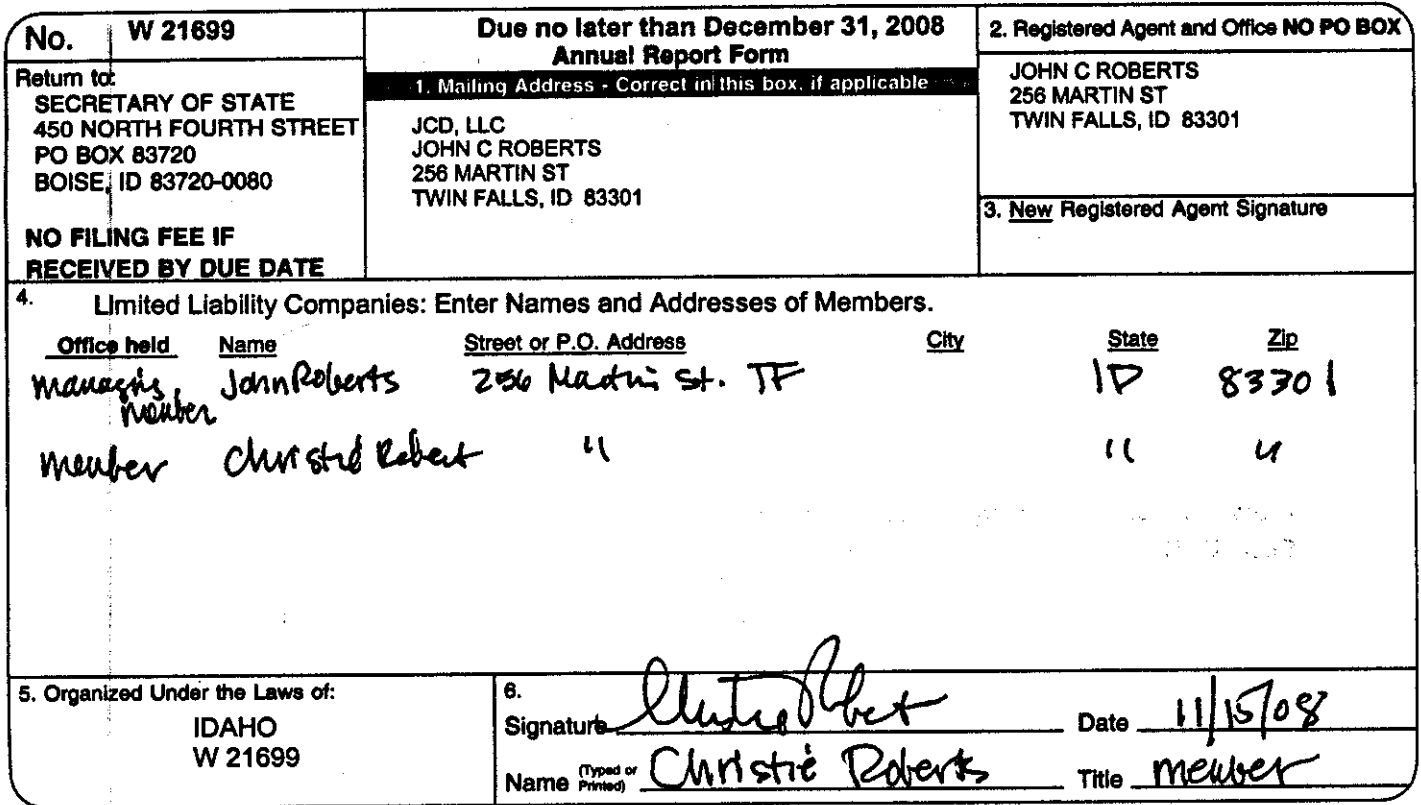 No. W 21699
Return to:
SECRETARY OF STATE
450 NORTH FOURTH STREET
PO BOX 83720
BOISE, ID 83720-0080
NO FILING FEE IF
RECEIVED BY DUE DATE
Due no later than December 31, 2008
Annual Report Form
1. Mailing Address - Correct in this box, if applicable
JCD, LLC
JOHN C ROBERTS
256 MARTIN ST
TWIN FALLS, ID 83301
2. Registered Agent and Office NO PO BOX
JOHN C ROBERTS
256 MARTIN ST
TWIN FALLS, ID 83301
3. New Registered Agent Signature
4. Limited Liability Companies: Enter Names and Addresses of Members.
Office held Name Street or P.O. Address City State Zip
managing John Roberts 256 Martin St. TF ID 83301
member
member Christié Robert " " "
5. Organized Under the Laws of:
IDAHO
W 21699
6.
Signature Date 11/15/08
Name (Typed or Printed) Christié Roberts Title member